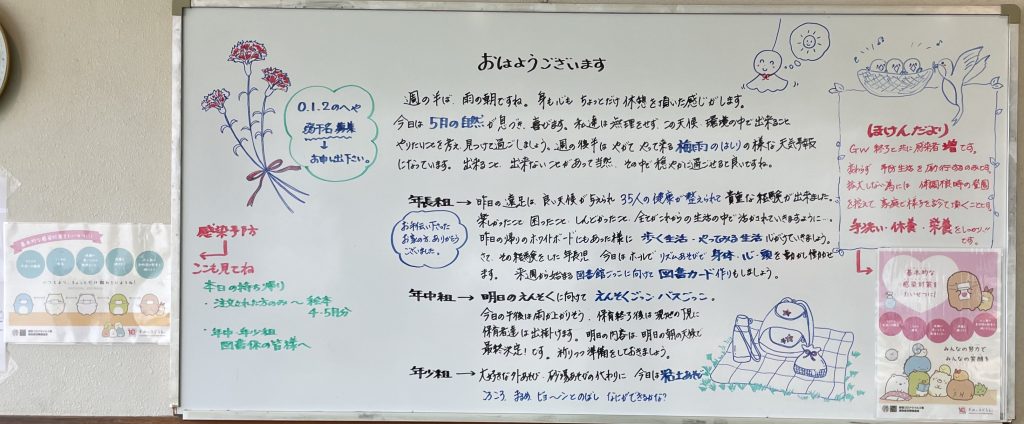 おはようございます
週の半ば、雨の朝ですね。身も心も ちょっとだけ休憩を頂いた感じがします。
今日は 5月の自然が息づき、喜びます。私達は無理をせず、この天候、環境の中で出来ること
やりたいことを考え見つけて過ごしましょう。週の後半は やがて やって来る梅雨のはしりの様な天気予報
になっています。出来ること、出来ないことがあって当然、その中で穏やかに過ごせると良いですね。
0.1.2のへや
若干名 募集
お申し出下さい。
年長組→昨日の遠足は、良い天候が与えられ 35人の健康が整えられて貴重な経験が出来ました。
楽しかったこと 困ったこと しんどかったこと 全てがこれからの生活の中で活かされていきますように…。
昨日の帰りのホワイトボードにもあった様に 歩く生活・やってみる生活 心がけていきましょう。
さて、その経験をした年長児 今日はホールで リズムあそびで 身体・心・頭を動かし
ます。 来週から始まる 図書館ごっこに向けて 図書カード作りもしましょう。
お手伝い下さった
お家の方、ありがとう
ございました。
年中組→明日のえんそくに向けて えんそくごっこ バスごっこ。
今日の午後は雨が上がりそう、保育終了後は現地の下見に
保育者達は出掛けます。明日の内容は明日の朝の天候で
最終決定!です。祈りつつ準備をしておきましょう。
年少組→大好きな外あそび・砂場あそびの代わりに 今日は粘土あそび
ころころ、まるめ、ビョ〜ンとのばし なにができるかな?
感染予防
ここも見てね
本日の持ち帰り
・注文された方のみ〜 絵本
4・5月分
・年中・年少組
図書係の皆様へ
ほけんだより
GW終了と共に感染者 増です。
手洗い・休養・栄養をしっかり!!
です。
基本的な
感染対策を
たいせつに!
みんなの努力で
みんなの笑顔を